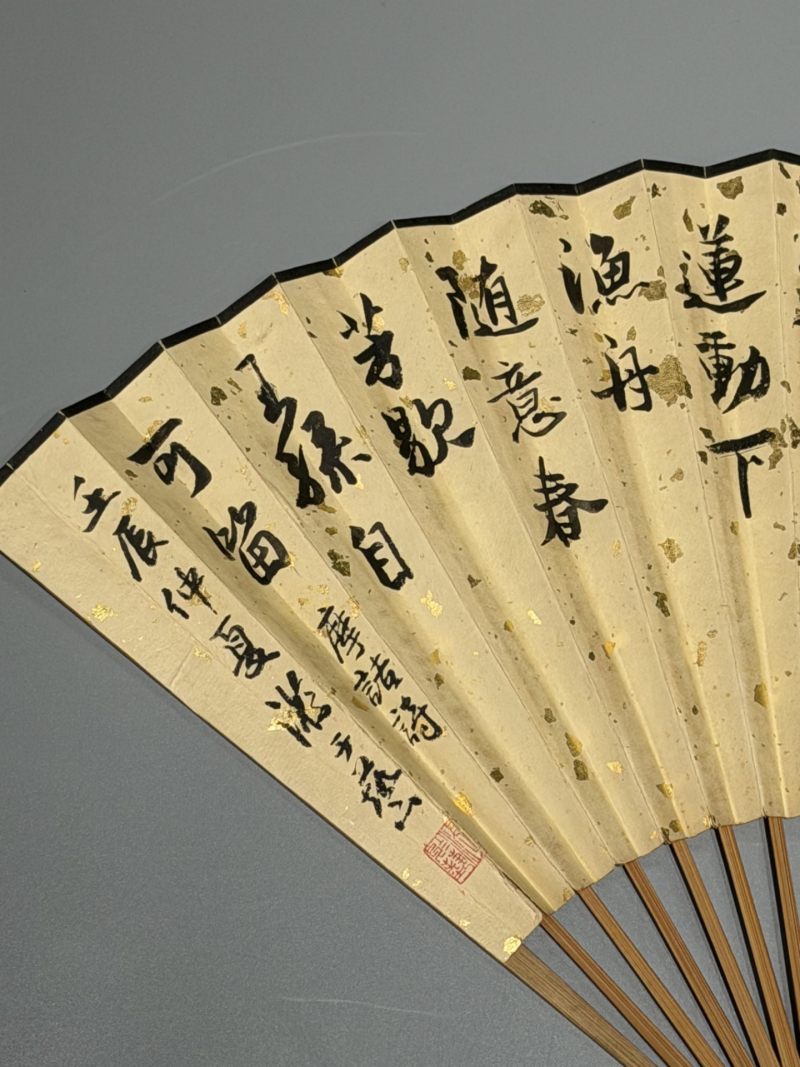 蓮動下
漁舟
随意春
芳歇
王孫自
可留
摩詰詩
壬辰仲夏